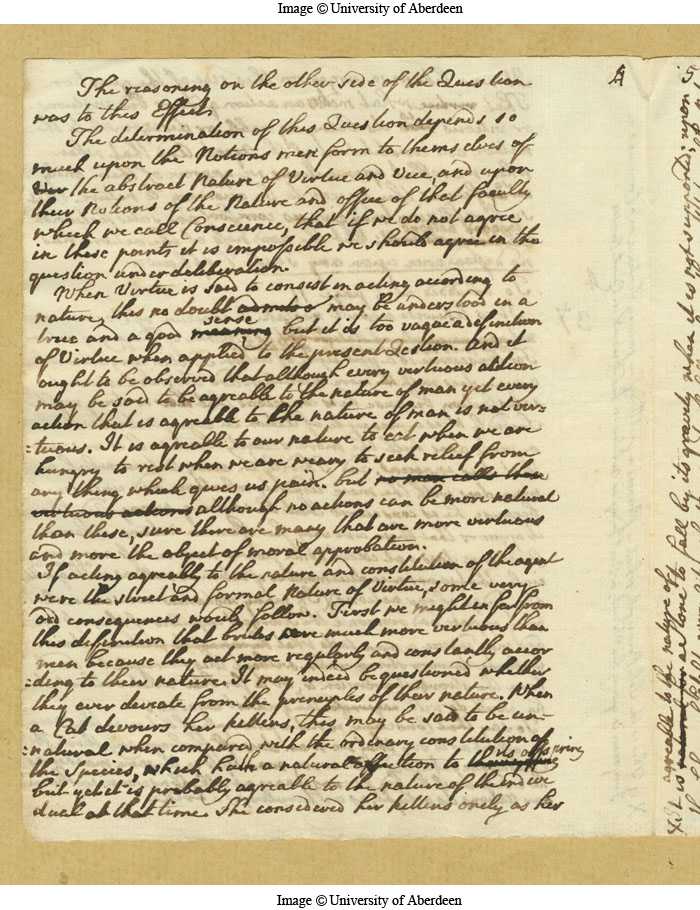 Image © University of Aberdeen
The reasoning on the other side of the Question
was to this Effect.
The determination of this Question depends so
much upon the Notions men form to themselves of
Ver the abstract Nature of Virtue and Vice, and upon
their Notions of the Nature and office of that faculty
which we call Conscience, that if we do not agree
in these points it is impossible we should agree in the
question under deliberation.
When Virtue is said to consist in acting according to
nature, this no doubt admits o may be understood in a
sense
true and a good meaning but it is too vague a definition
of Virtue when applied to the present Qestion. And it
ought to be observed that although every virtuous action
may be said to be agreable to the nature of man yet every
action that is agreable to the nature of man is not vir=
=tuous. It is agreable to our nature to eat when we are
hungry to rest when we are weary to seek relief from
any thing which gives us pain. but no man calls these
virtuous actions although no actions can be more natural
than these, sure there are many that are more virtuous
and more the object of moral approbation.
If acting agreably to the nature and constitution of the agent
were the strict and formal Nature of Virtue, some very
odd consequences would follow. First we might infer from
this definition that brutes were much more virtuous than
men because they act more regularly and constantly accor
=ding to their nature. It may indeed be questioned whether
they ever deviate from the principles of their nature. When
a Cat devours her kittens, this may be said to be un=
=natural when compared with the ordinary constitution of
its offspring
the Species, which have a natural affection to their young
but yet it is probably agreable to the nature of the indivi
dual at that time. She considered her kittens onely as her
4
5
agreable to the nature of
it is natural for a stone to fall by its gravity when it is not supported; upon
Image © University of Aberdeen